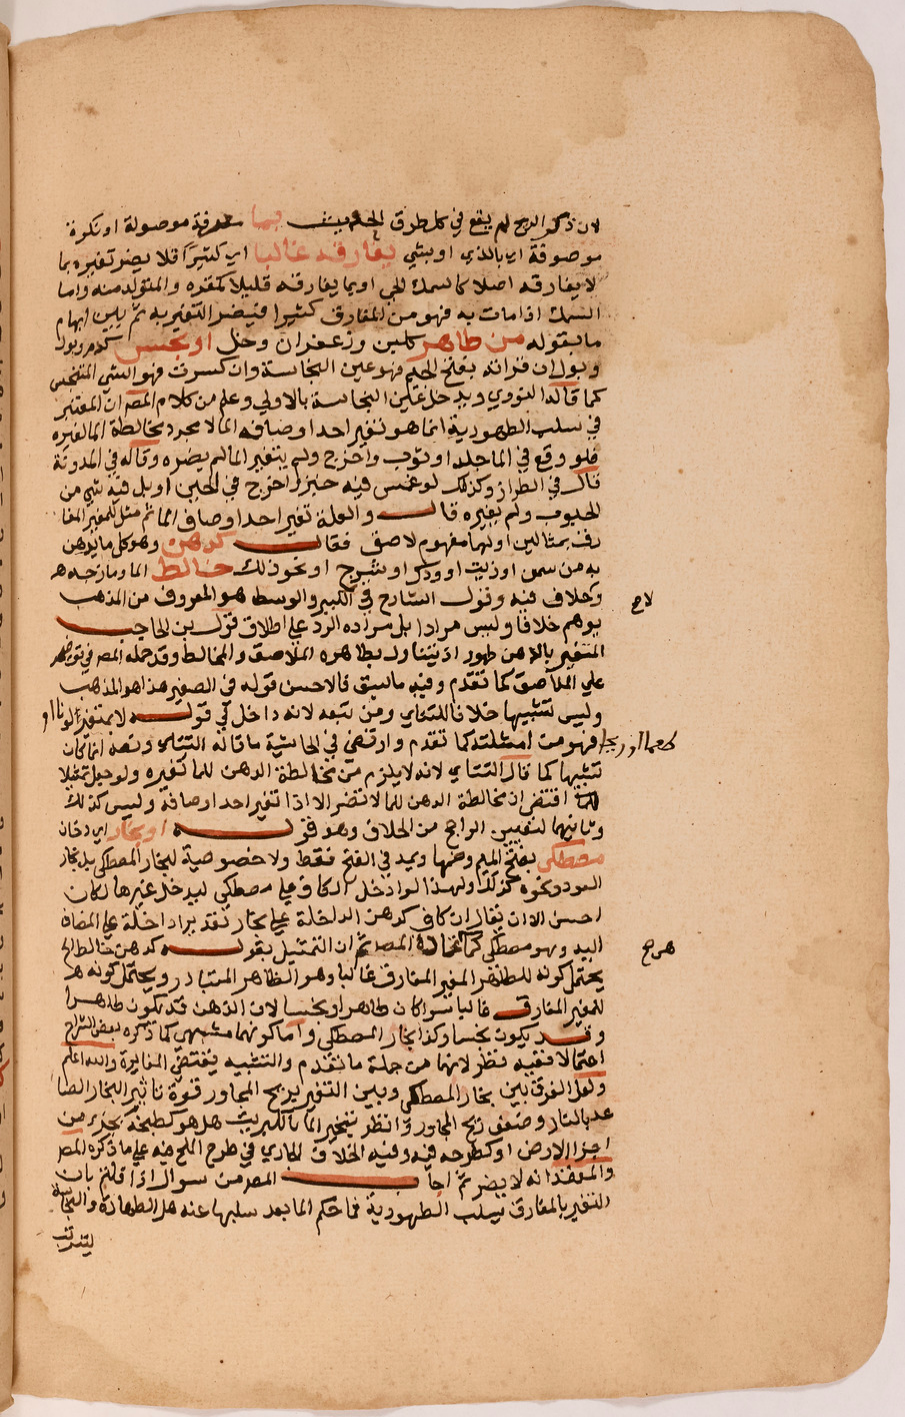 لان ذكر الريح لم يقع في كل طرق الحديث بما معرفة موصولة او نكرة
موصوفة اي بالذي او بشي يفارقه غالبا اي كثيرا فلا يضر تغيره بما
لا يفارقه اصلا كالسمك الحي او بما يفارقه قليلا كمقره والمتولد منه واما
السمك اذا مات به فهو من المفارق كثيرا فيضر التغير به ثم بين ابهام
ما بقوله من طاهر كلبن وزعفران وخل او نجس كدم وبول
وبول ان قراته بفتح الجيم فهو عين النجاسة وان كسرت فهو الشي المتنجس
كما قاله النووي ويدخل عين النجاسة بالاولي وعلم من كلام المص ان المعتبر
في سلب الطهورية انما هو تغير احد اوصافه الما لا مجرد مخالطة الما لغيره
فلو وقع في الما جلد او ثوب واخرج ولم يتغير الما لم يضره وقاله في المدونة
قال في الطراز وكذلك لو غمس فيه خبز واخرج في الحين او بل فيه شي من
الحبوب ولم يغيره قال والعلة تغير احد اوصاف الما ثم مثل للمغير المفا
رق بمثالين اولهما مفهوم لاصق فقال كدهن وهو كل ما يدهن
به من سمن او زيت او ودك او شيرج او نحو ذلك خالط الما ومازجه
وخلاف فيه وقول الشارح في الكبير والوسط هو المعروف من المذهب
لاح
يوهم خلافا وليس مرادا بل مراده الرد علي اطلاق قول بن الحاجب
المتغير بالدهن طهور اذ يتناول بظاهره الملاصق والمخالط وقد حمله المص في توضيحه
علي الملاصق كما تقدم وفيه ما سبق فالاحسن قوله في الصغير هذا هو المذهب
وليس تشبيها خلافا للتتاي ومن تبعه لانه داخل في قوله لا بمتغير لونا او
طعما او ريحا فهو من امثلته كما تقدم وارتضي في الحاشية ما قاله التتاي ونصه انما كان
تشبيها كما قال التتاي لانه لا يلزم من مخالطة الدهن للما تغيره ولو جعل تمثيلا
اقتضي ان مخالطة الدهن للما لا تضر الا اذا تغير احد اوصافه وليس كذلك
وثانيهما لتعيين الراجح من الخلاف وهو قوله او بخار اي دخان
مصطكي بفتح الميم وضمها ويمد في الفتح فقط ولا خصوصية لبخار المصطكي بل بخار
العود ونحوه كذلك ولهذا لو ادخل الكاف علي مصطكي ليدخل غيرها لكان
احسن الا ان يقال ان كاف كدهن الداخلة علي بخار تقدير اداخلة علي المضاف
اليه وهو مصطكي ثم ان التمثيل بقوله كدهن خالط الخ
هرح
يحتمل كونه للطاهر المغير المفارق غالبا وهو الظاهر المتبادر ويحتمل كونه
للمغير المفارق غالبا سوا كان طاهرا او نجسا لان الدهن قد يكون طاهرا
وقد يكون نجسا وكذا بخار المصطكي واما كونهما مشبهين كما ذكره بعض الشراح
احتمالا ففيه نظر لانهما من جملة ما تقدم والتشبيه يقتضي المغايرة والله اعلم
ولعل الفرق بين بخار المصطكي وبين التغير بريح المجاور قوة تاثير البخار الصا
عد بالنار وضعف ريح المجاور وانظر تبخير الما بالكبريت هل هو كطبخه بجزء من
اجزا الارض او كطرحه فيه وفيه الخلاف الجاري في طرح الملح فيه علي ما ذكره المص
والمعتمد انه لا يضر ثم اجاب المص من سوال اذا قلتم بان
التغير بالمفارق يسلب الطهورية فما حكم الما بعد سلبها عنه هل الطهارة والنجاسة
ليترتب